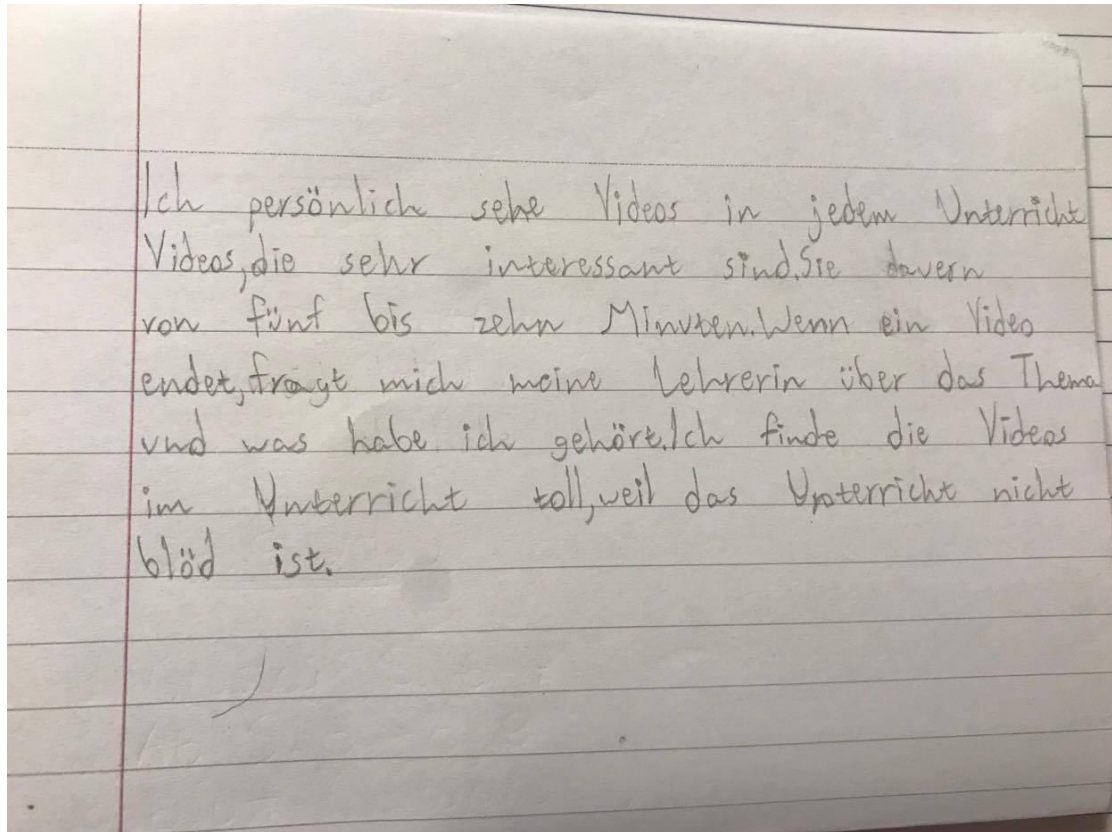 Ich persönlich sehe Videos in jedem Unterricht
Videos, die sehr interessant sind. Sie dauern
von fünf bis zehn Minuten. Wenn ein Video
endet, fragt mich meine Lehrerin über das Thema
und was habe ich gehört. Ich finde die Videos
im Unterricht toll, weil das Unterricht nicht
blöd ist.